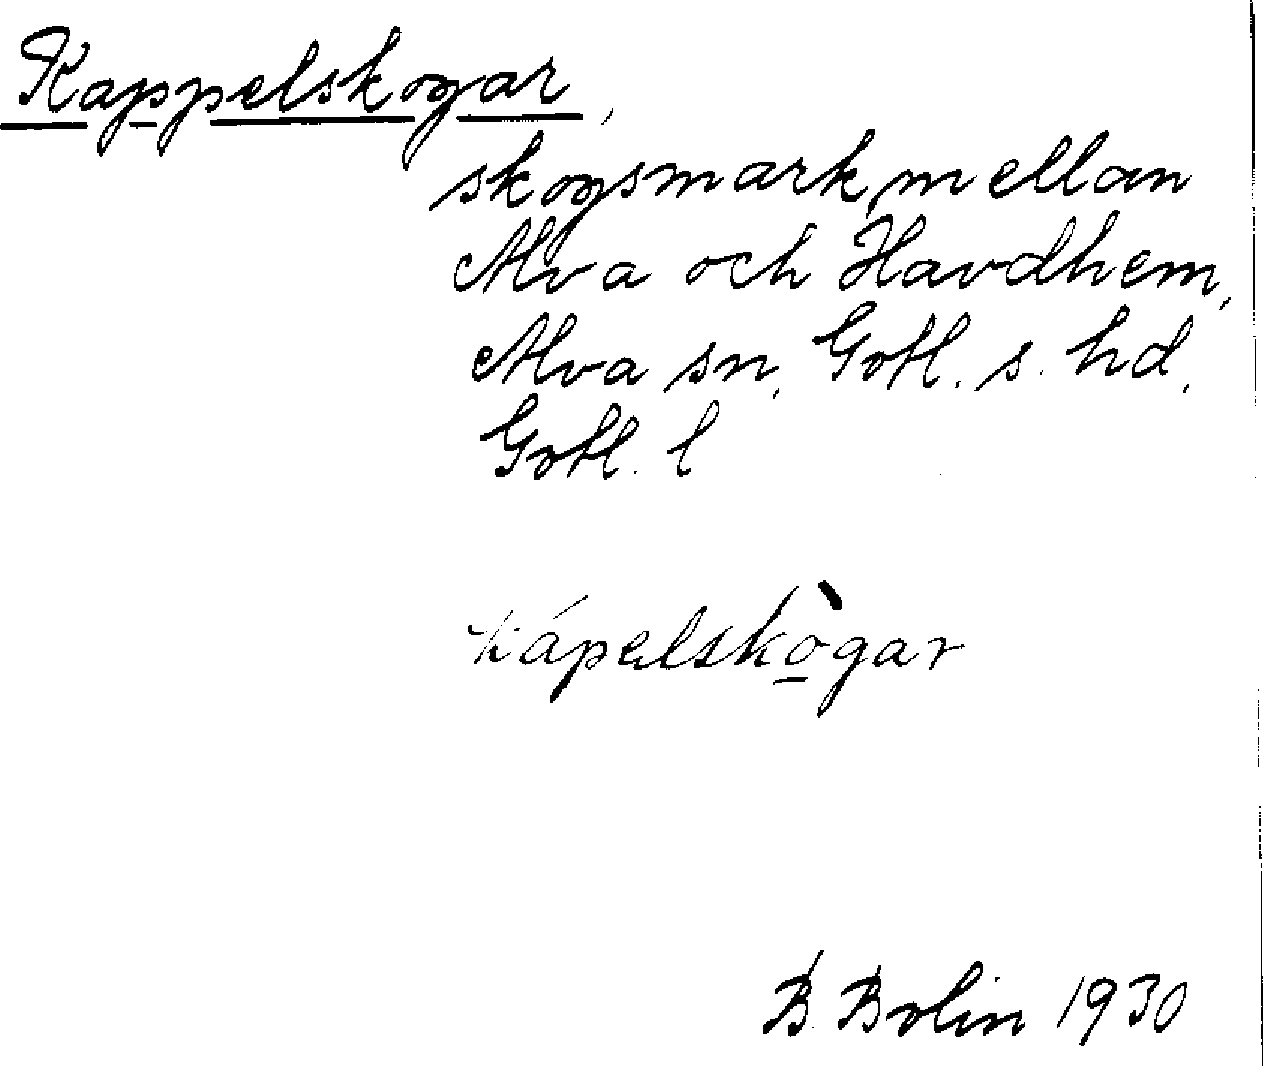 Kappelskogar,
skogsmark mellan
Alva och Havdhem,
Alva sn, Gotl. s. hd,
Gotl. l
kápelskògar
B. Bolin 1930